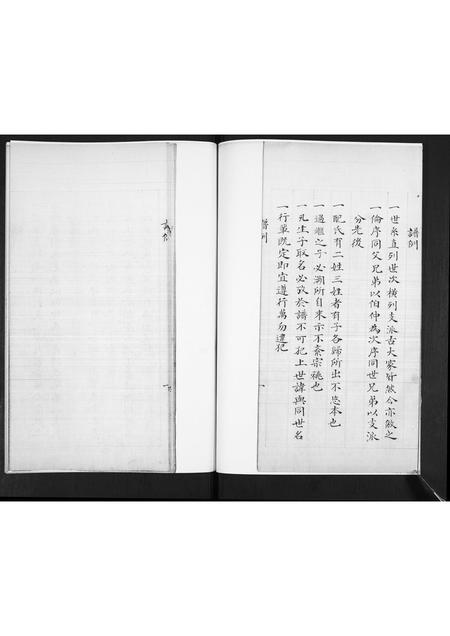 譜例
一世系直列世次橫列支派古大家皆然今亦做之
一倫序同父兄弟以伯仲為次序同世兄弟以支派
分先後
一配氏有二姓三姓者有子各歸所出不忘本也
一過繼之子必溯所自來示不紊宗祧也
一凡生子取名必考於譜不可犯上世諱與同世名
一行單既定即宜遵行萬勿違犯
譜例
一